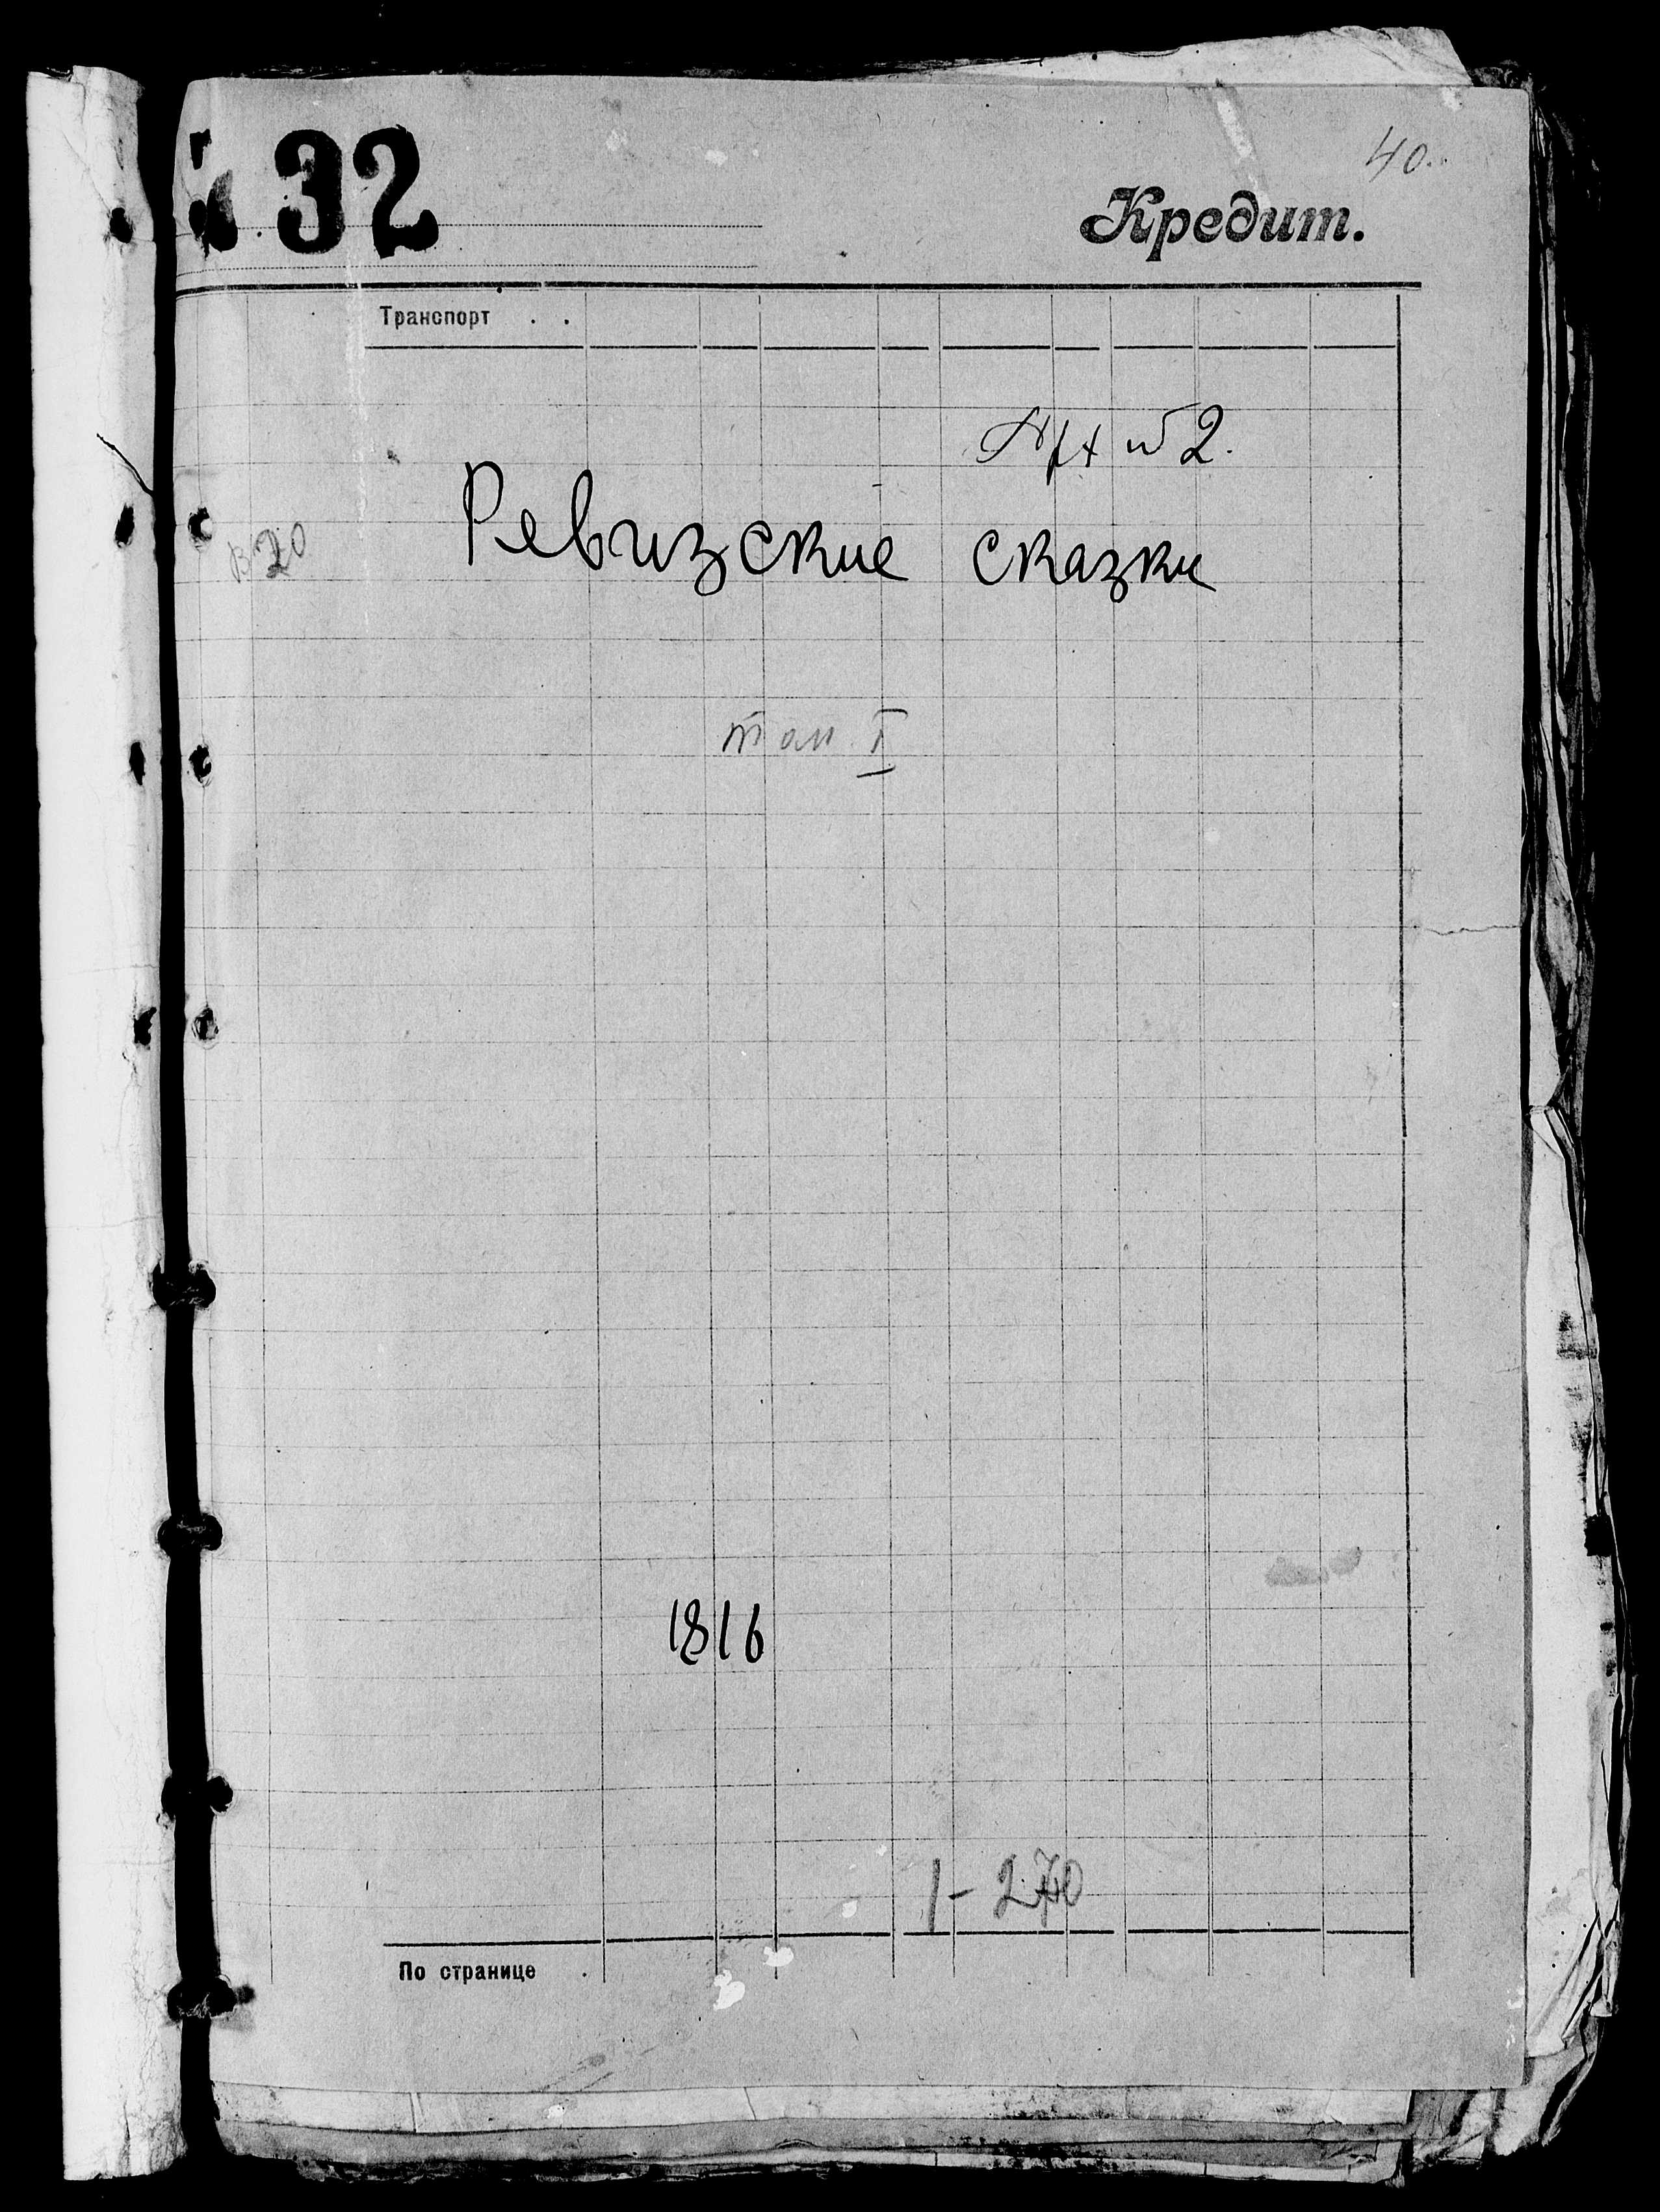 40.
32
Кредит.
Транспорт . .
Арх № 2.
Ревизские сказки
том I
1816
1-270
По странице .